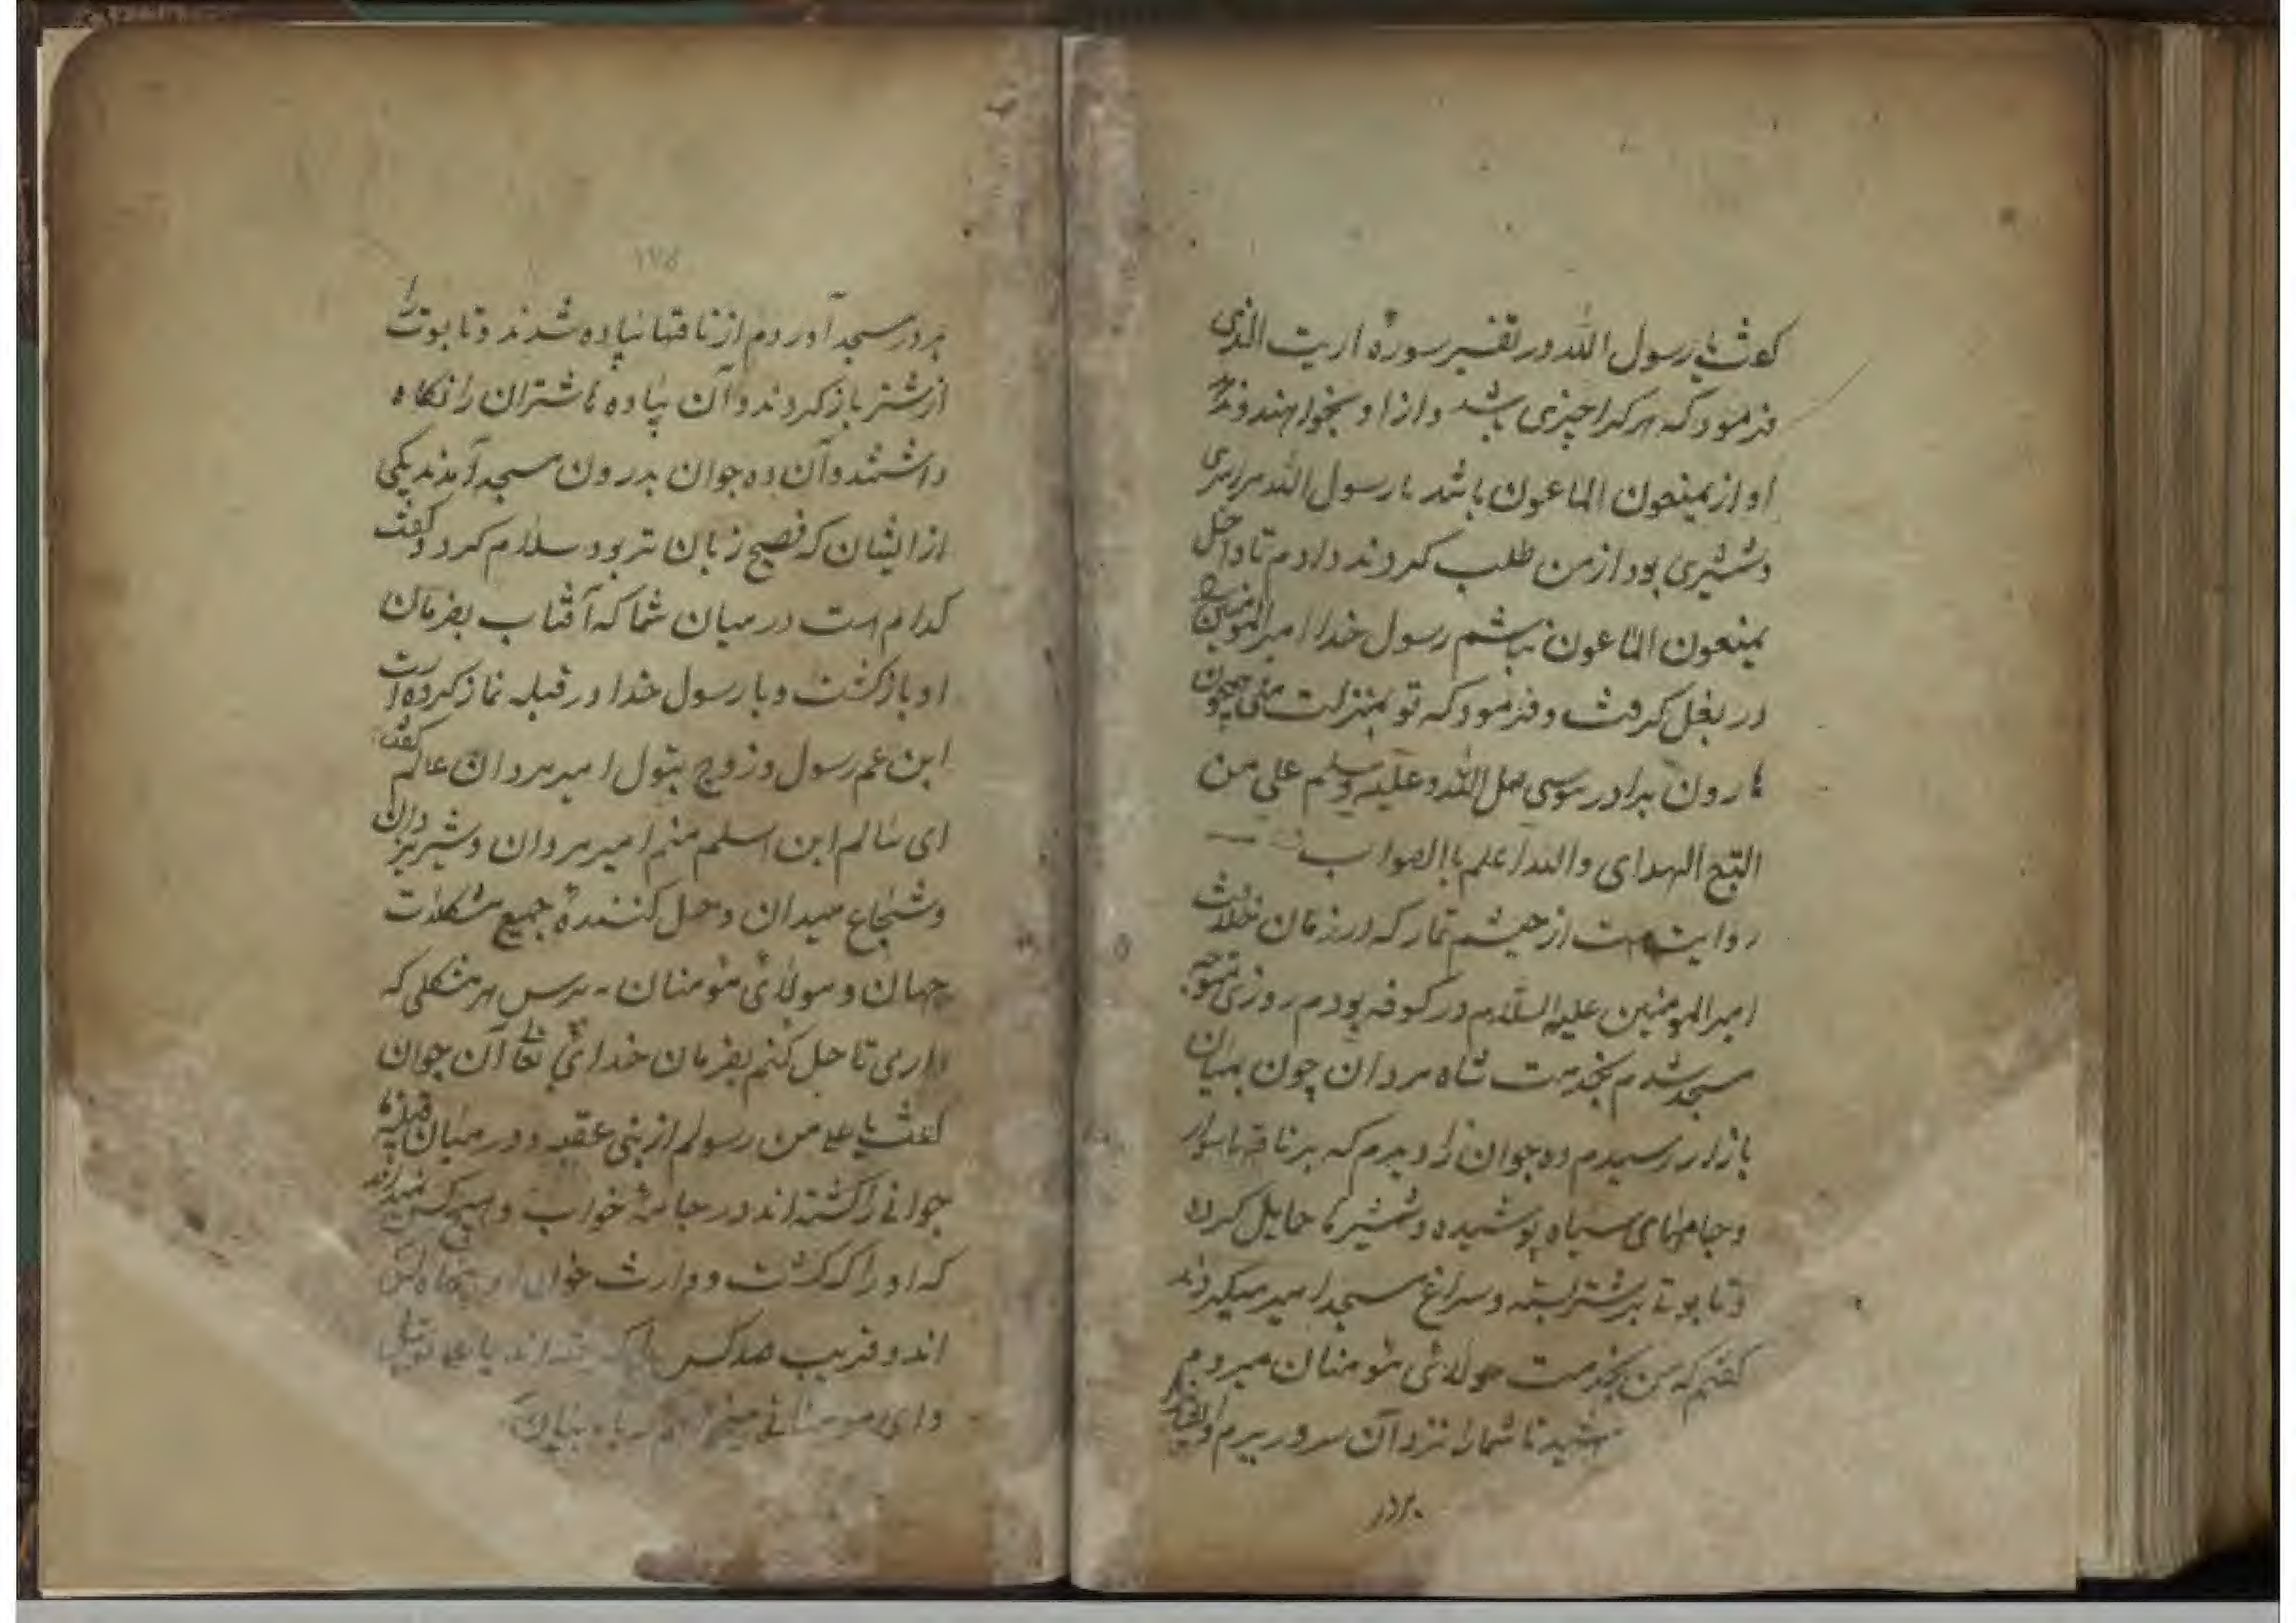 گفت یا رسول الله در تفسیر سورهٔ اریت الذی
فرمود که هر کرا چیزی باشد و از او بخواهند و ندهد
او از یمنعون الماعون باشد یا رسول الله مرا
و شتری بود از من طلب کردند دادم تا داخل
یمنعون الماعون نباشم رسول خدا امیرالمؤمنین را
در بغل گرفت و فرمود که تو بمنزلت منی همچون
هارون برادر موسی صل الله و علیه وسلم علی من
التبع الهدای والله اعلم باالصواب
روایت است از میثم تمار که در زمان خلافت
امیرالمومنین علیه السلام در کوفه بودم روزی متوجه
مسجد شدم بخدمت شاه مردان چون بمیان
بازار رسیدم ده جوان را دیدم که بر ناقها سوار
و جامهای سیاه پوشیده و شمشیرها حمایل کرده
و تابوتی بر شتر بسته و سراغ مسجد امیر میکردند
گفتم که من بخدمت مولای مؤمنان میروم
تا شما را نزد آن سرور برم
بردر
۱۷۵
بر در مسجد آوردم از ناقها پیاده شدند و تابوت را
از شتر باز کردند و آن پیاده ها شتران را نگاه
داشتند و آن ده جوان بدرون مسجد آمدند یکی
از ایشان که فصیح زبان تر بود سلام کرد و گفت
کدام است در میان شما که آفتاب بفرمان
او بازگشت و با رسول خدا در قبله نماز کرده است
ابن عم رسول و زوج بتول امیر مردان عالم گفت
ای سالم ابن اسلم منم امیر مردان و شیر یزدان
و شجاع میدان و حل کنندهٔ جمیع مشکلات
جهان و مولای مؤمنان بپرس هر مشکلی که
داری تا حل کنم بفرمان خدای تعا آن جوان
گفت یا علی من رسولم از بنی عقد و در میان قبیله ما
جوانی را کشته اند در جامهٔ خواب و هیچ کس نمیداند
که او را که کشت و وارث خون او
اند و قریب صد کس یا علی
وای